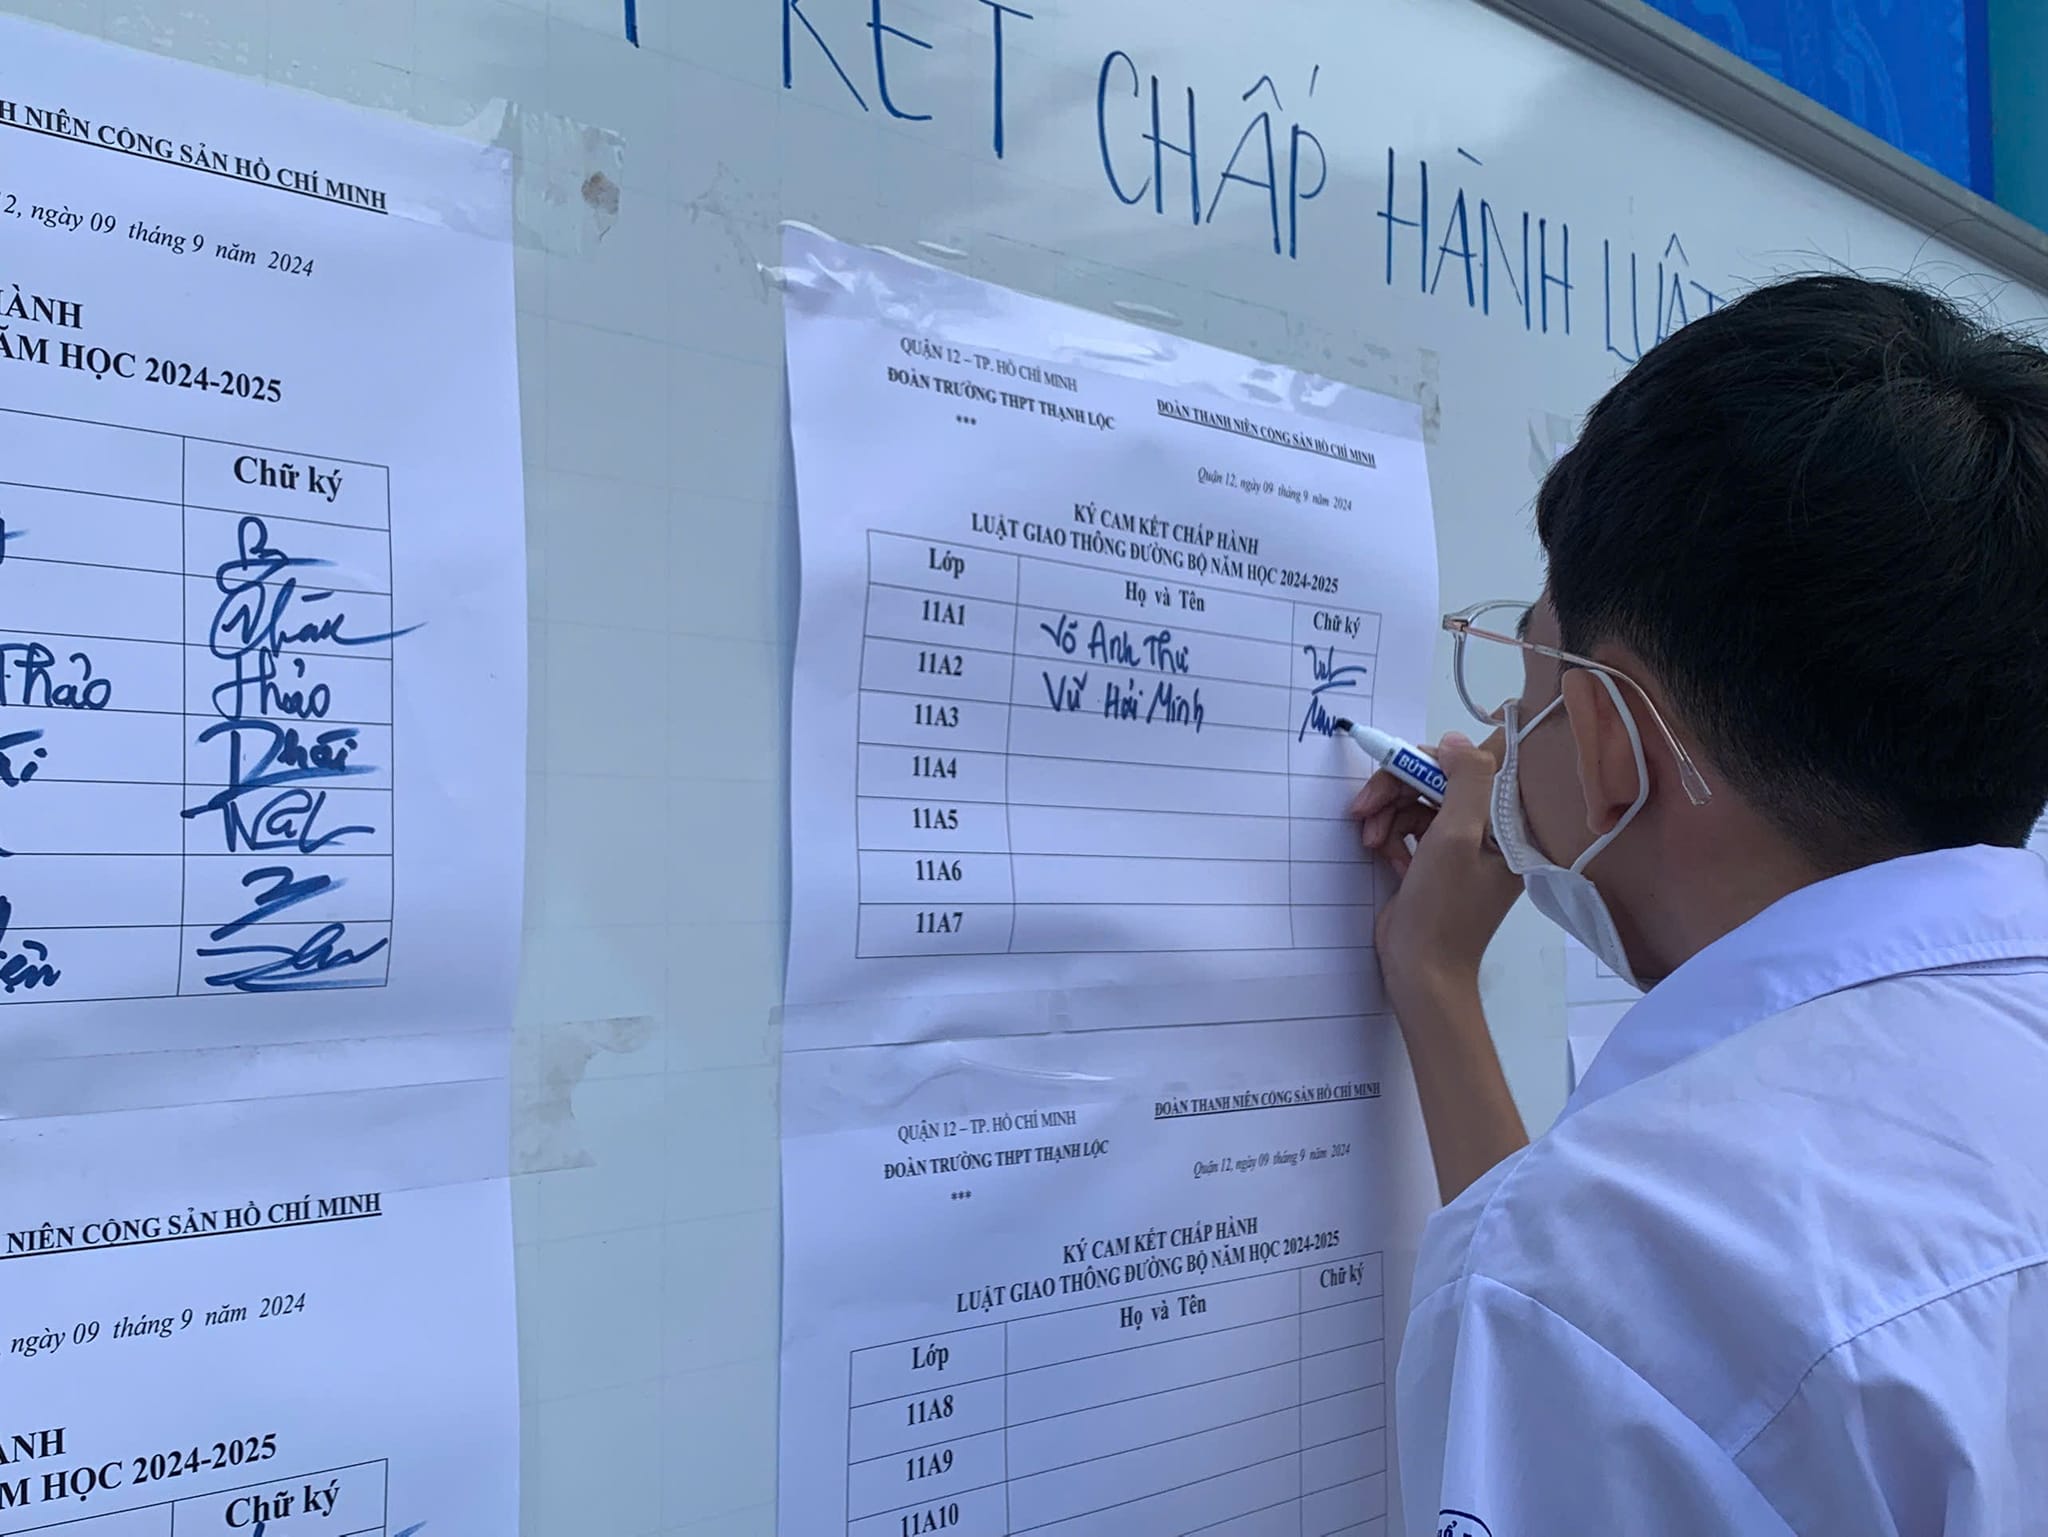 KẾT CHẤP HÀNH LUẬT
H NIÊN CỘNG SẢN HỒ CHÍ MINH
2, ngày 09 tháng 9 năm 2024
HÀNH
ĂM HỌC 2024-2025
Chữ ký
Thảo Thảo
Thái
NIÊN CỘNG SẢN HỒ CHÍ MINH
ngày 09 tháng 9 năm 2024
ÀNH
M HỌC 2024-2025
Chữ ký
QUẬN 12 – TP. HỒ CHÍ MINH
ĐOÀN TRƯỜNG THPT THẠNH LỘC
***
ĐOÀN THANH NIÊN CỘNG SẢN HỒ CHÍ MINH
Quận 12, ngày 09 tháng 9 năm 2024
KÝ CAM KẾT CHẤP HÀNH
LUẬT GIAO THÔNG ĐƯỜNG BỘ NĂM HỌC 2024-2025
Lớp Họ và Tên Chữ ký
11A1 Võ Anh Thư
11A2 Vũ Hải Minh
11A3
11A4
11A5
11A6
11A7
BÚT LÔ
QUẬN 12 – TP. HỒ CHÍ MINH
ĐOÀN TRƯỜNG THPT THẠNH LỘC
***
ĐOÀN THANH NIÊN CỘNG SẢN HỒ CHÍ MINH
Quận 12, ngày 09 tháng 9 năm 2024
KÝ CAM KẾT CHẤP HÀNH
LUẬT GIAO THÔNG ĐƯỜNG BỘ NĂM HỌC 2024-2025
Lớp Họ và Tên Chữ ký
11A8
11A9
11A10